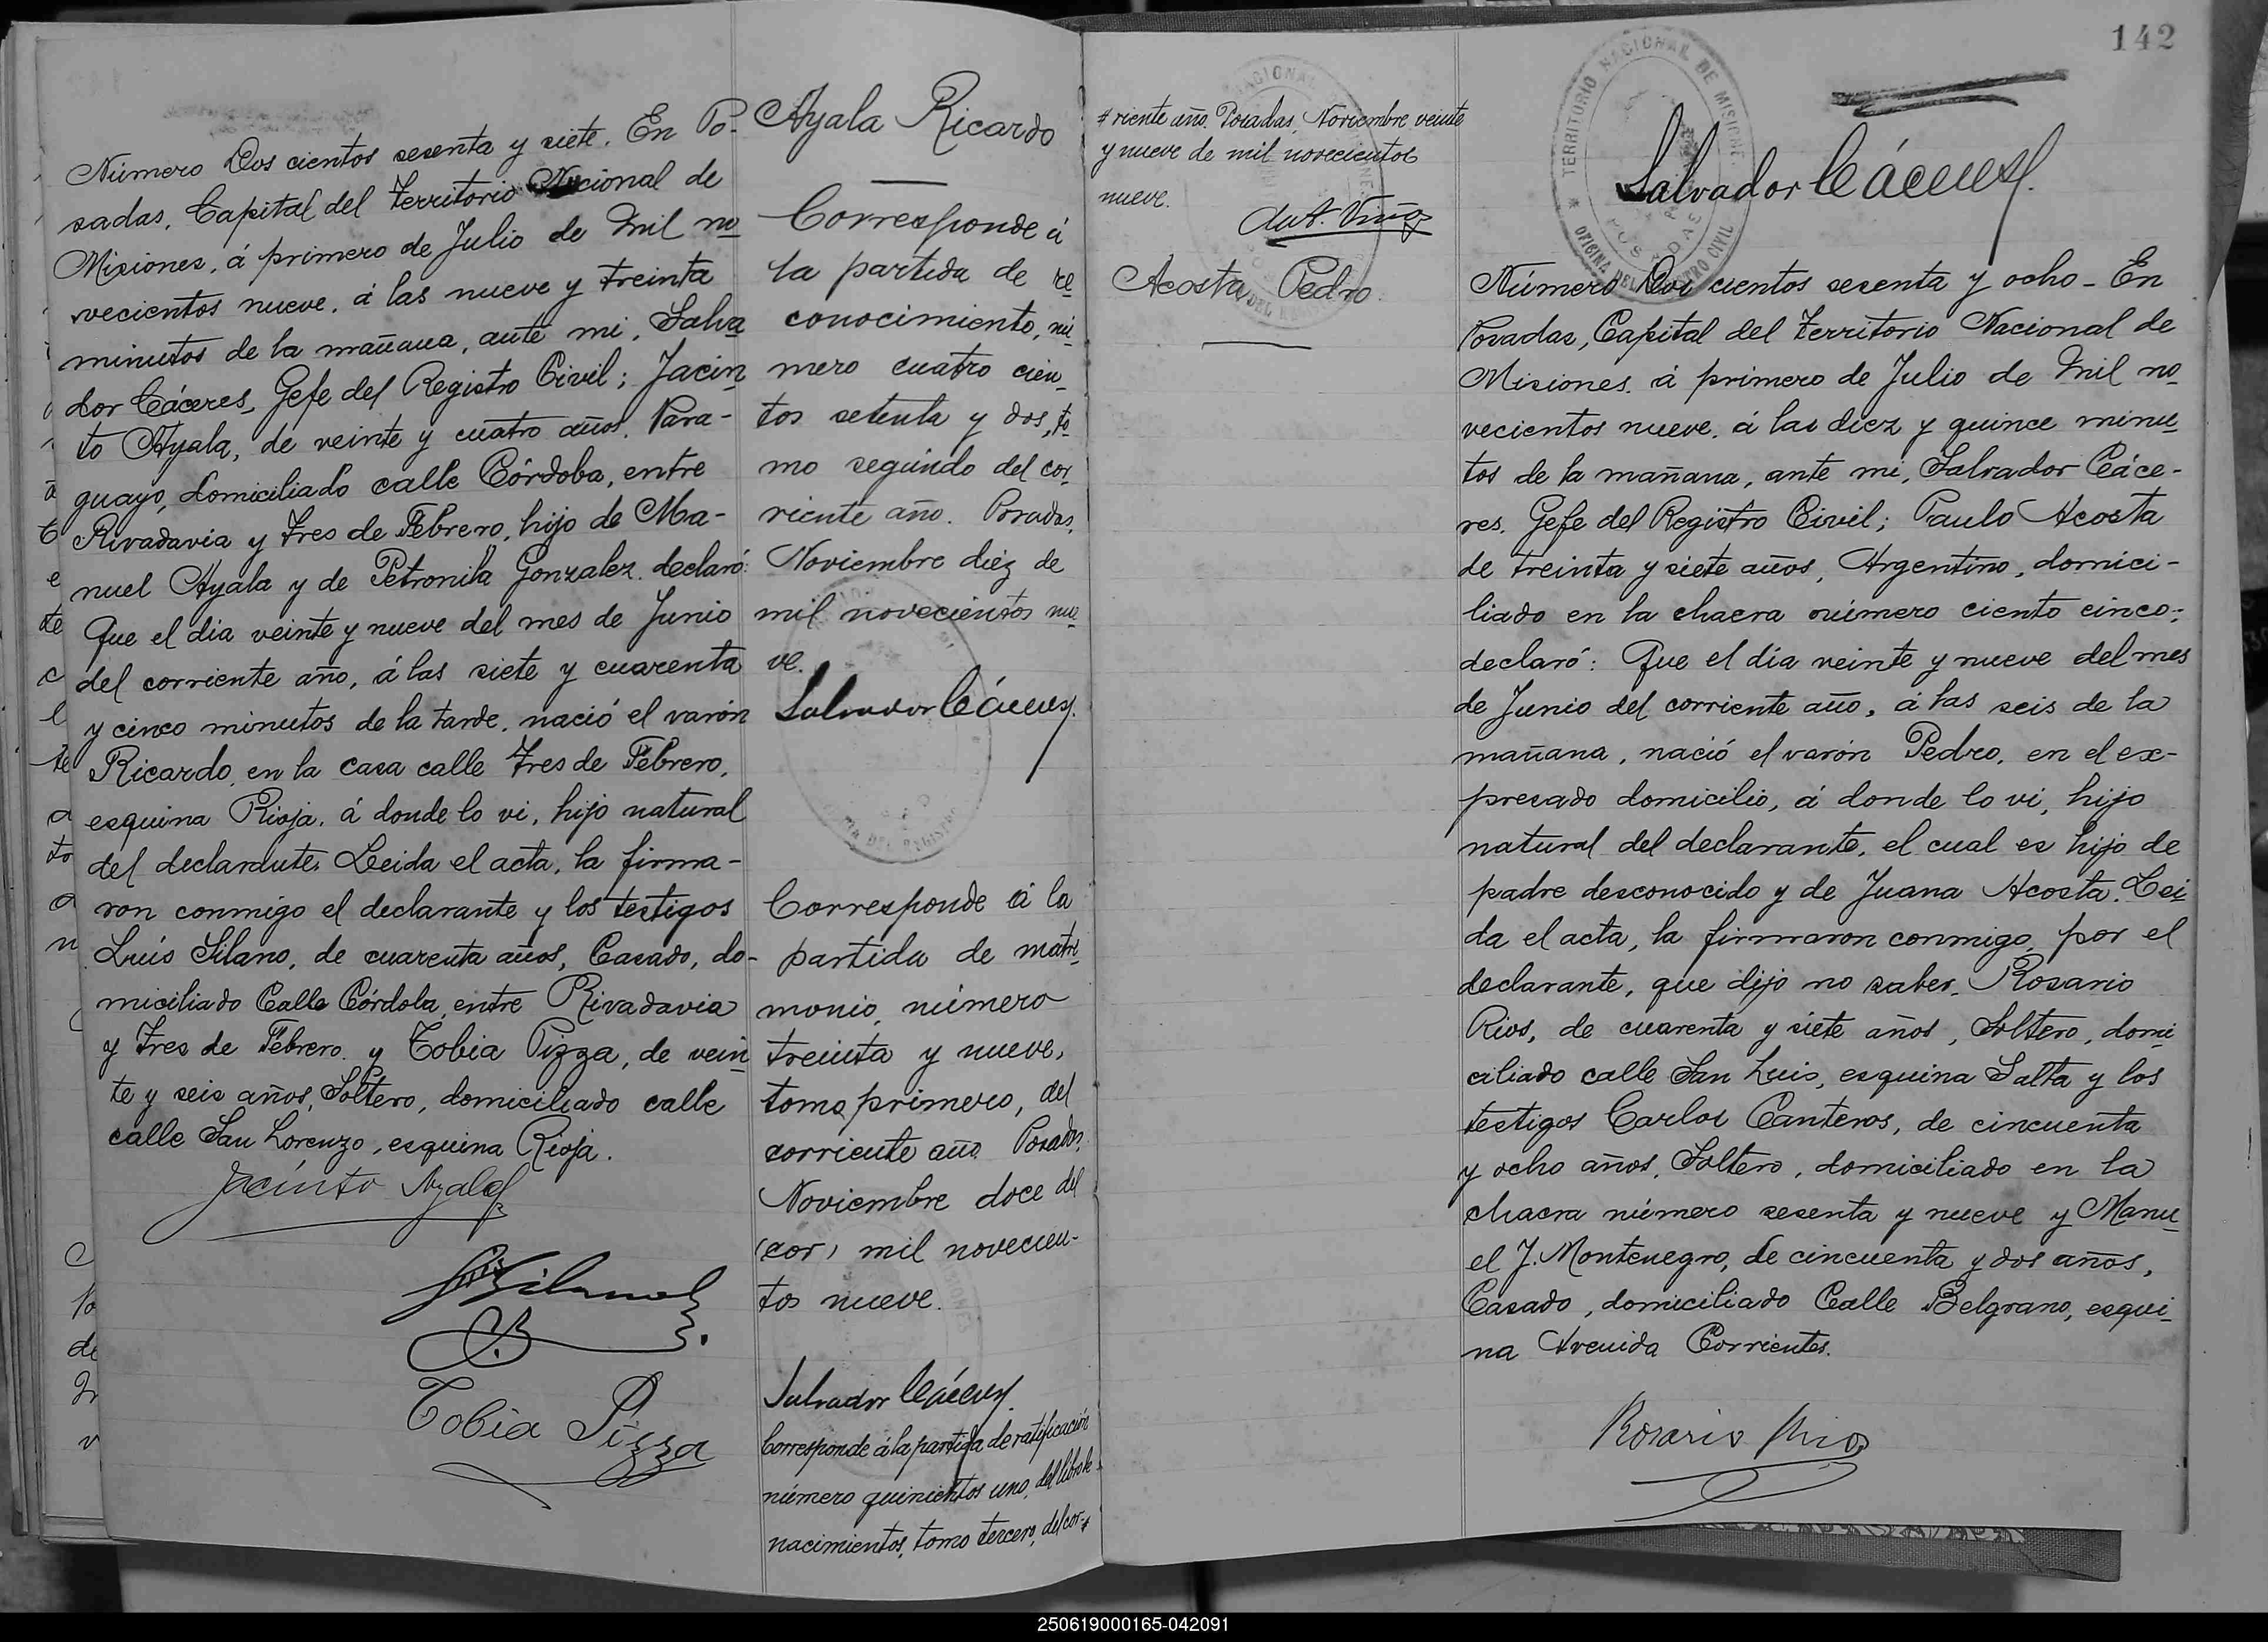 Número Dos cientos sesenta y siete. En Po-
sadas, Capital del Territorio Nacional de
Misiones, á primero de Julio de Mil no
vecientos nueve, á las nueve y treinta
minutos de la mañana, ante mi, Salva
dor Cáceres, Gefe del Registro Civil; Jacin
to Ayala, de veinte y cuatro años, Para-
guayo, domiciliado calle Córdoba, entre
Rivadavia y Tres de Febrero, hijo de Ma-
nuel Ayala y de Petronila Gonzalez, declaró:
Que el dia veinte y nueve del mes de Junio
del corriente año, á las siete y cuarenta
y cinco minutos de la tarde, nació el varón
Ricardo, en la casa calle Tres de Febrero,
esquina Rioja, á donde lo vi, hijo natural
del declarante. Leida el acta, la firma-
ron conmigo el declarante y los testigos
Luis Silano, de cuarenta años, Casado, do-
miciliado Calle Córdoba, entre Rivadavia
y Tres de Febrero y Tobia Pizza, de vein
te y seis años, Soltero, domiciliado calle
calle San Lorenzo, esquina Rioja.
Jacinto Ayala
Silano
Tobia Pizza
Ayala Ricardo
Corresponde á
la partida de re
conocimiento, nú
mero cuatro cien
tos setenta y dos, to
mo segundo del cor
riente año. Posadas,
Noviembre diéz de
mil novecientos nue
ve.
Salvador Cáceres.
Corresponde á la
partida de matri
monio, número
treinta y nueve,
tomo primero, del
corriente año. Posadas,
Noviembre doce del
(cor) mil novecien-
tos nueve.
Salvador Cáceres.
Corresponde á la partida de ratificación
número quinientos uno, del libro de
nacimientos, tomo tercero, del cor-#
# riente año. Posadas, Noviembre veinte
y nueve de mil novecientos
nueve.
Acosta Pedro
142
TERRITORIO NACIONAL DE MISIONES
OFICINA DEL REGISTRO CIVIL
POSADAS
Salvador Cáceres.
Número Dos cientos sesenta y ocho - En
Posadas, Capital del Territorio Nacional de
Misiones, á primero de Julio de Mil no
vecientos nueve, á las diez y quince minu
tos de la mañana, ante mi, Salvador Cáce-
res, Gefe del Registro Civil; Paulo Acosta
de treinta y siete años, Argentino, domici-
liado en la chacra número ciento cinco;
declaró: Que el dia veinte y nueve del mes
de Junio del corriente año, á las seis de la
mañana, nació el varón Pedro, en el ex-
presado domicilio, á donde lo vi, hijo
natural del declarante, el cual es hijo de
padre desconocido y de Juana Acosta. Lei
da el acta, la firmaron conmigo, por el
declarante, que dijo no saber, Rosario
Rios, de cuarenta y siete años, Soltero, domi
ciliado calle San Luis, esquina Salta y los
testigos Carlos Canteros, de cincuenta
y ocho años, Soltero, domiciliado en la
chacra número sesenta y nueve y Manu
el J. Montenegro, de cincuenta y dos años,
Casado, domiciliado Calle Belgrano, esqui
na Avenida Corrientes.
Rosario Rios
250619000165-042091